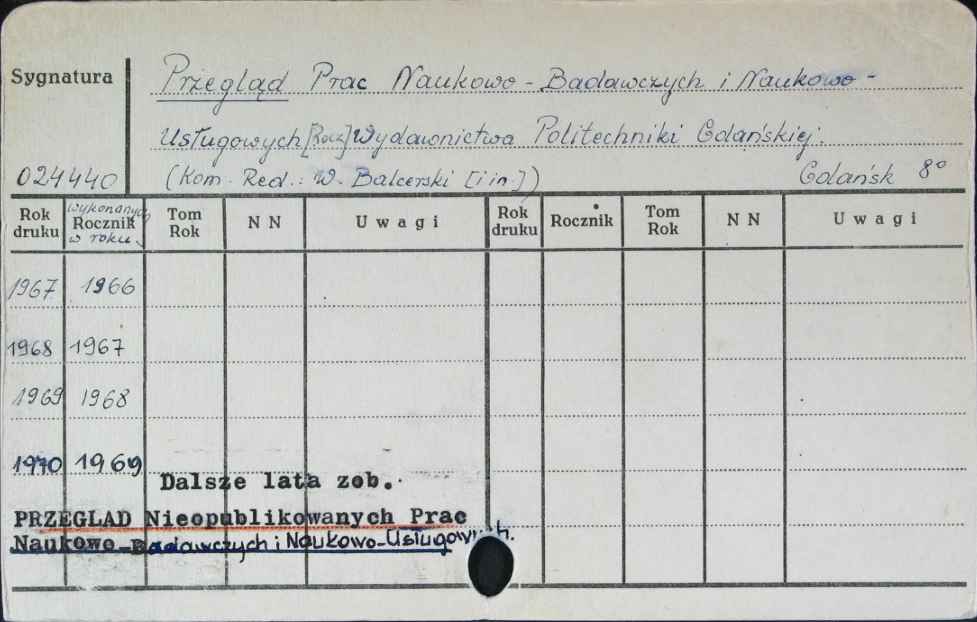 Sygnatura
Przegląd Prac Naukowo-Badawczych i Naukowo-
Usługowych [Rocz] Wydawnictwa Politechniki Gdańskiej.
024440 (Kom. Red.: W. Balcerski [i in.]) Gdańsk 8°
Rok druku wykonanych Rocznik w roku Tom Rok NN Uwagi Rok druku Rocznik Tom Rok NN Uwagi
1967 1966
1968 1967
1969 1968
1970 1969
Dalsze lata zob.
PRZEGLAD Nieopublikowanych Prac
Naukowo-Badawczych i Naukowo-Usługowych.